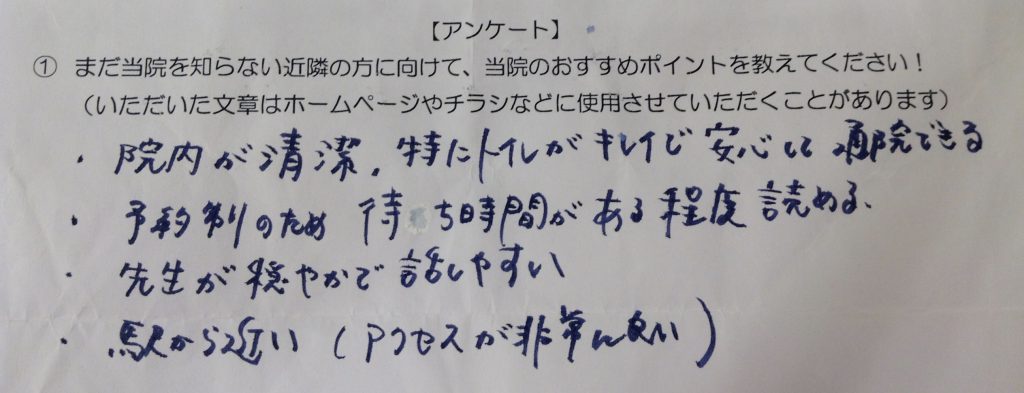 【アンケート】
① まだ当院を知らない近隣の方に向けて、当院のおすすめポイントを教えてください！
（いただいた文章はホームページやチラシなどに使用させていただくことがあります）
・院内が清潔。特にトイレがキレイで安心して通院できる
・予約制のため待ち時間がある程度読める。
・先生が穏やかで話しやすい
・駅から近い（アクセスが非常に良い）